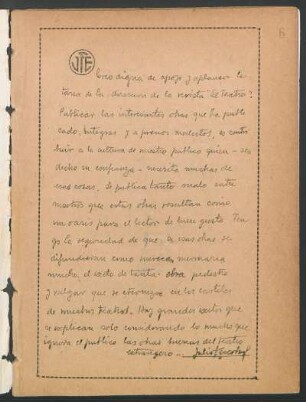 6
JTE
Creo digna de apoyo y aplauso la
tarea de la direccion de la revista "La Teatro".
Publicar las interesantes obras que ha publi
cado, íntegras y a precios modestos, es contri
buir a la cultura de nuestro publico quien - sea
dicho en confianza - necesita muchas de
esas cosas. Se publica tanto malo entre
nosotros que estas obras resultan como
un oasis para el lector de buen gusto. Ten
go la seguridad de que si esas obras se
difundieran como merecen mermaria
mucho el exito de tanta obra pedestre
y vulgar que se eterniza en los carteles
de nuestros teatros. Hay grandes exitos que
se explican solo considerando lo mucho que
ignora el publico las obras buenas del teatro
extranjero -